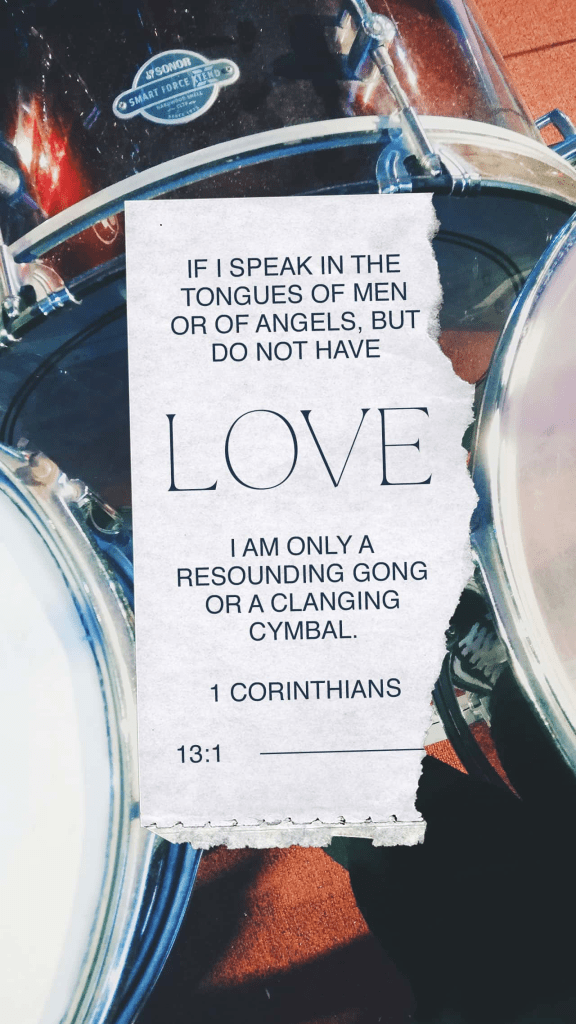 SONOR
SMART FORCE XTEND
IF I SPEAK IN THE
TONGUES OF MEN
OR OF ANGELS, BUT
DO NOT HAVE
LOVE
I AM ONLY A
RESOUNDING GONG
OR A CLANGING
CYMBAL.
1 CORINTHIANS
13:1